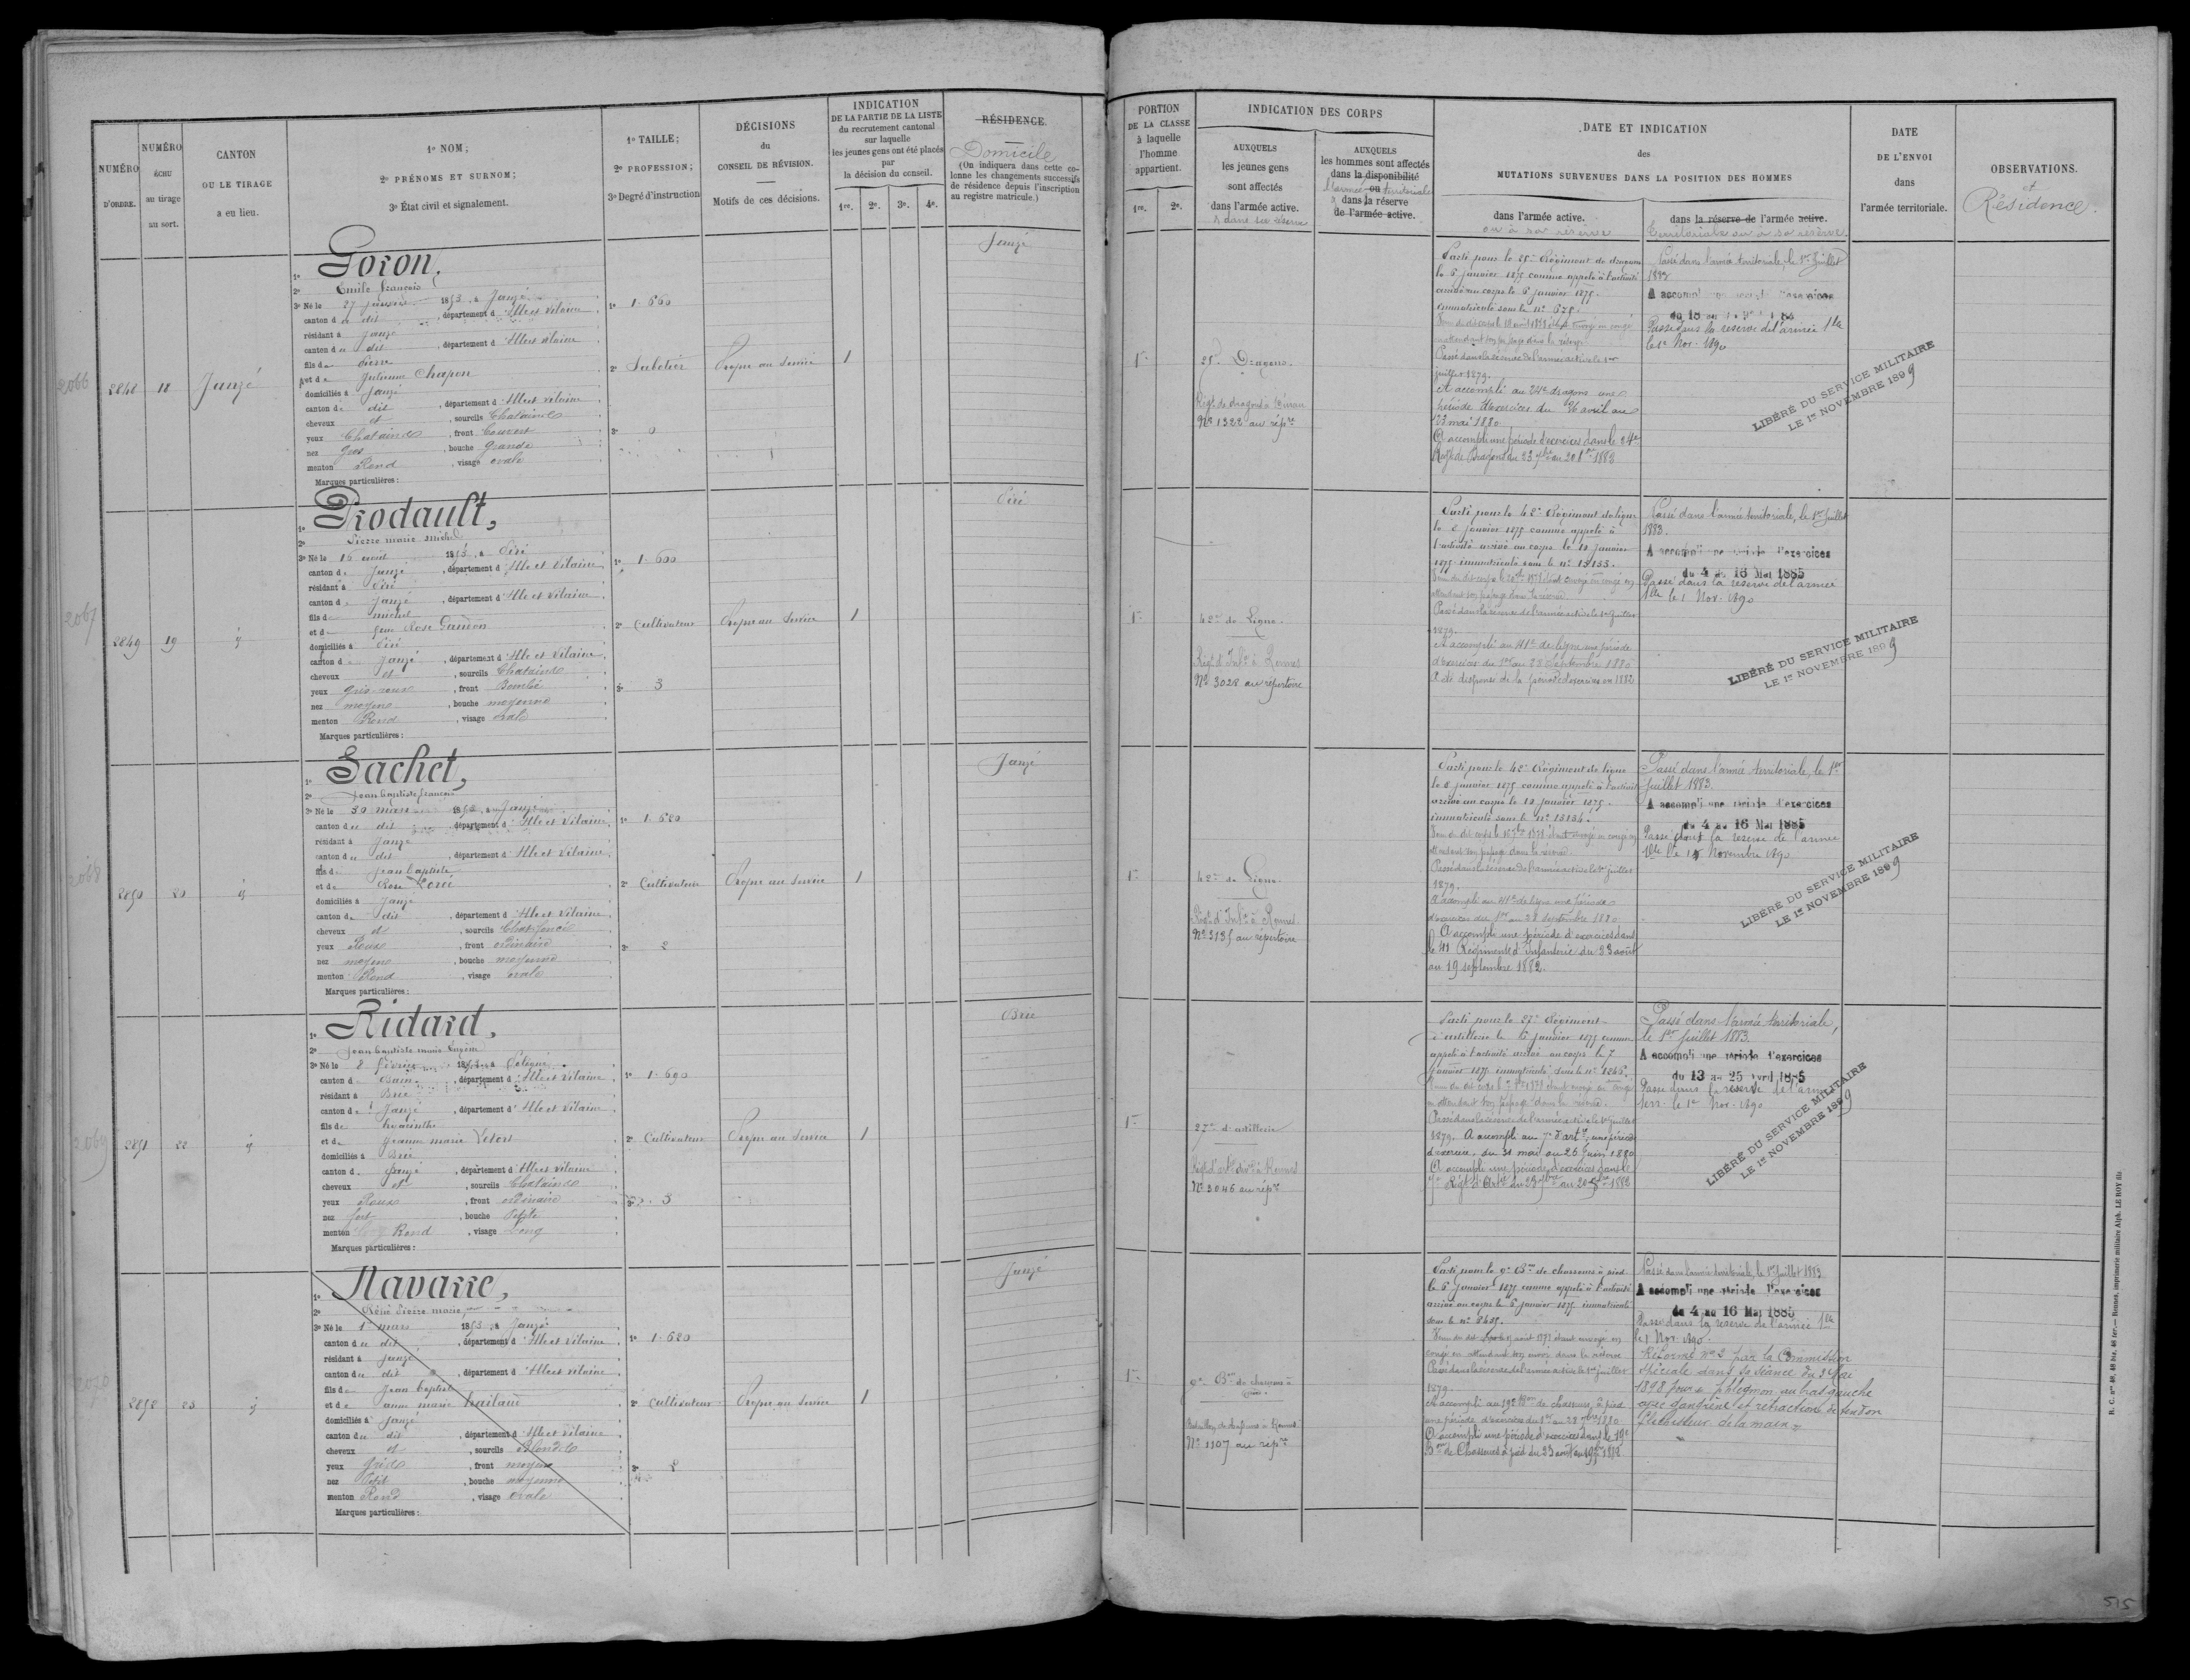 NUMÉRO
D'ORDRE.
NUMÉRO
ÉCHU
au tirage
au sort.
CANTON
OU LE TIRAGE
a eu lieu.
1º NOM;
2º PRÉNOMS ET SURNOM;
3º État civil et signalement.
1º TAILLE;
2º PROFESSION;
3º Degré d'instruction
DÉCISIONS
du
CONSEIL DE RÉVISION.
Motifs de ces décisions.
INDICATION
DE LA PARTIE DE LA LISTE
du recrutement cantonal
sur laquelle
les jeunes gens ont été placés
par
la décision du conseil.
1re. 2e. 3e. 4e.
RÉSIDENCE.
Domicile
(On indiquera dans cette co-
lonne les changements successifs
de résidence depuis l'inscription
au registre matricule.)
PORTION
DE LA CLASSE
à laquelle
l'homme
appartient.
1re. 2e.
INDICATION DES CORPS
AUXQUELS
les jeunes gens
sont affectés
dans l'armée active.
& dans sa réserve
AUXQUELS
les hommes sont affectés
dans la disponibilité
ou
l'armée territoriale
dans la réserve
de l'armée active.
DATE ET INDICATION
des
MUTATIONS SURVENUES DANS LA POSITION DES HOMMES
dans l'armée active.
ou à sa réserve
dans la réserve de l'armée active.
territoriale ou à sa réserve
DATE
DE L'ENVOI
dans
l'armée territoriale.
OBSERVATIONS.
et
Résidence.
2066
2848 18 Janzé
1º Goron,
2º Emile François
3º Né le 27 janvier 1853, à Janzé
canton du dit, département d'Ille et Vilaine
résidant à Janzé
canton du dit, département d'Ille et Vilaine
fils de Pierre
et de Julienne Chapon
domiciliés à Janzé
canton du dit, département d'Ille et Vilaine
cheveux et, sourcils Chatains
yeux Chatains, front Couvert
nez Gros, bouche Grande
menton Rond, visage ovale
Marques particulières:
1º 1.660
2º Sabotier
3º 0
Propre au service
1
Janzé
1re
25e Dragons.
Régt de dragons à Dinan
Nº 1322 au répre
Parti pour le 25e Régiment de dragons
le 6 janvier 1875 comme appelé à l'activité
arrivé au corps le 6 janvier 1875.
immatriculé sous le nº 675.
Passé dans la réserve de l'armée active le 1er
juillet 1879.
A accompli au 24e dragons une
période d'exercices du 26 avril au
23 mai 1880
A accompli une période d'exercices dans le 24e
Régt de Dragons du 23 7bre au 20 8bre 1882
Passé dans l'armée territoriale, le 1er Juillet
1883
A accompli une période d'exercices
Passé dans la réserve de l'armée Tle
le 1er Nov. 1890
LIBÉRÉ DU SERVICE MILITAIRE
LE 1er NOVEMBRE 1899
2067
2849 19 ij
1º Prodault,
2º Pierre Marie Michel
3º Né le 16 août 1853, à Piré
canton de Janzé, département d'Ille et Vilaine
résidant à Piré
canton de Janzé, département d'Ille et Vilaine
fils de michel
et de feue Rose
domiciliés à Piré
canton de Janzé, département d'Ille et Vilaine
cheveux et, sourcils Chatains
yeux gris-roux, front Bombé
nez moyen, bouche moyenne
menton Rond, visage ovale
Marques particulières:
1º 1.600
2º Cultivateur
3º 3
Propre au service
1
Piré
1re
42e de Ligne.
Régt d'Infie à Rennes
Nº 3028 au répertoire
Parti pour le 42e Régiment de ligne
le 2 janvier 1875 comme appelé à
l'activité arrivé au corps le 10 janvier
1875 immatriculé sous le nº 13133.
Passé dans la réserve de l'armée active le 1er juillet
1879.
A accompli au 41e de ligne une période
d'exercices du 1er au 28 septembre 1880
A été dispensé de la période d'exercices en 1882
Passé dans l'armée territoriale, le 1er Juillet
1883.
A accompli une période d'exercices
du 4 au 16 Mai 1885
Passé dans la réserve de l'armée
Tle le 1 Nov. 1890
LIBÉRÉ DU SERVICE MILITAIRE
LE 1er NOVEMBRE 1899
2068
2850 20 ij
1º Sachet,
2º Jean Baptiste François
3º Né le 30 mars 1853, à Janzé
canton du dit, département d'Ille et Vilaine
résidant à Janzé
canton du dit, département d'Ille et Vilaine
fils de Jean Baptiste
et de Rose
domiciliés à Janzé
canton du dit, département d'Ille et Vilaine
cheveux et, sourcils Chat. foncés
yeux Roux, front ordinaire
nez moyen, bouche moyenne
menton Rond, visage ovale
Marques particulières:
1º 1.620
2º Cultivateur
3º 2
Propre au service
1
Janzé
1re
42e de Ligne.
Régt d'Infie à Rennes.
Nº 3135 au répertoire
Parti pour le 42e Régiment de ligne
le 2 janvier 1875 comme appelé à l'activité
arrivé au corps le 10 janvier 1875.
immatriculé sous le nº 13134.
Passé dans la réserve de l'armée active le 1er juillet
1879.
A accompli au 41e de ligne une période
d'exercices du 1er au 28 septembre 1880
A accompli une période d'exercices dans
le 41 Régiment d'Infanterie du 23 août
au 19 septembre 1882.
Passé dans l'armée territoriale, le 1er
Juillet 1883.
A accompli une période d'exercices
du 4 au 16 Mai 1885
Passé dans la réserve de l'armée
Tle le 1er Novembre 1890
LIBÉRÉ DU SERVICE MILITAIRE
LE 1er NOVEMBRE 1899
2069
2851 22 ij
1º Ridard,
2º Jean Baptiste Marie
3º Né le 8 Février 1853, à
canton de Bain, département d'Ille et Vilaine
résidant à Brie
canton de Janzé, département d'Ille et Vilaine
fils de hyacinthe
et de Jeanne marie
domiciliés à Brie
canton de Janzé, département d'Ille et Vilaine
cheveux et, sourcils Chatains
yeux Roux, front ordinaire
nez fort, bouche Petite
menton Rond, visage Long
Marques particulières:
1º 1.690
2º Cultivateur
3º 3
Propre au service
1
Brie
1re
27e d'artillerie
Régt d'artie à Rennes
Nº 3046 au répre
Parti pour le 27e Régiment
d'artillerie le 6 janvier 1875 comme
appelé à l'activité arrivé au corps le 7
janvier 1875 immatriculé sous le nº
Passé dans la réserve de l'armée active le 1er juillet
1879. A accompli au 7e d'artie une période
d'exercices du 31 mai au 26 Juin 1880
A accompli une période d'exercices dans le
7e Régt d'Artie du 23 7bre au 20 8bre 1882
Passé dans l'armée territoriale,
le 1er Juillet 1883.
A accompli une période d'exercices
du 13 au 25 avril 1885
Passé dans la réserve de l'armée
terr. le 1er Nov. 1890
LIBÉRÉ DU SERVICE MILITAIRE
LE 1er NOVEMBRE 1899
2070
2852 23 ij
1º Navarre,
2º Réné Pierre marie
3º Né le 1er mars 1853, à Janzé
canton du dit, département d'Ille et Vilaine
résidant à Janzé
canton du dit, département d'Ille et Vilaine
fils de Jean Baptiste
et de anne marie
domiciliés à Janzé
canton du dit, département d'Ille et Vilaine
cheveux et, sourcils Blonds
yeux Gris, front moyen
nez Petit, bouche moyenne
menton Rond, visage ovale
Marques particulières:
1º 1.620
2º Cultivateur
3º 2
Propre au service
1
Janzé
1re
9e Bon de chasseurs à
pied.
Bataillon de chasseurs à Rennes
Nº 1107 au répre
Parti pour le 9e Bon de chasseurs à pied
le 6 Janvier 1875 comme appelé à l'activité
arrivé au corps le 6 janvier 1875 immatriculé
sous le nº
Passé dans la réserve de l'armée active le 1er juillet
1879.
A accompli au 19e Bon de chasseurs à pied
une période d'exercices du 1er au 28 7bre 1880
A accompli une période d'exercices dans le 19e
Bon de Chasseurs à pied du 23 août au 19 7bre 1882.
Passé dans l'armée territoriale, le 1er Juillet 1883
A accompli une période d'exercices
du 4 au 16 Mai 1885
Passé dans la réserve de l'armée Tle
le 1 Nov. 1890.
Réformé nº 2 par la Commission
spéciale dans sa séance du 3 Mai
1898 pour phlegmon au bras gauche
avec gangrène et rétraction de tendon
fléchisseur de la main
R. C. nos 48, 48 bis, 48 ter. — Rennes, imprimerie militaire Alph. LE ROY fils
515